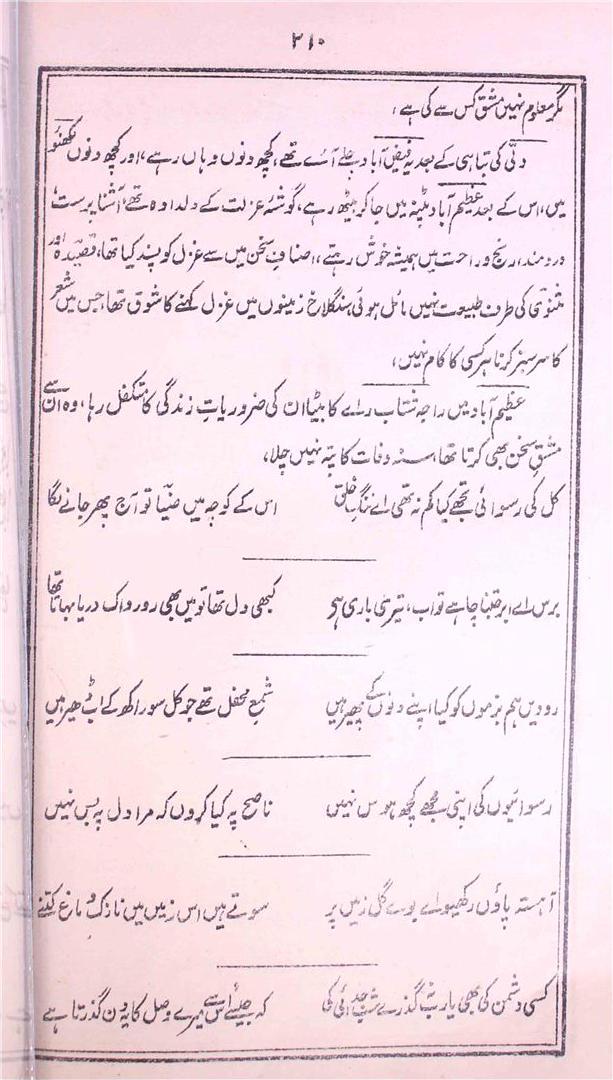 ۲۱۰
مگر معلوم نہیں مشق کس سے کی ہے،
دلّی کی تباہی کے بعد یہ فیض آباد چلے آئے تھے، کچھ دنوں وہاں رہے، اور کچھ دنوں لکھنؤ
میں، اس کے بعد عظیم آباد پٹنہ میں جا کر بیٹھ رہے، گوشۂ عزلت کے دلدادہ تھے، آشنا پرست،
دردمند، رنج و راحت میں ہمیشہ خوش رہتے، اصنافِ سخن میں سے غزل کو پسند کیا تھا، قصیدہ اور
مثنوی کی طرف طبیعت نہیں مائل ہوئی، سنگلاخ زمینوں میں غزل کہنے کا شوق تھا، جس میں شعر
کا سرسبز کرنا ہر کسی کا کام نہیں،
عظیم آباد میں راجہ شتاب رائے کا بیٹا ان کی ضروریاتِ زندگی کا متکفل رہا، وہ ان سے
مشقِ سخن بھی کرتا تھا، سنہ وفات کا پتہ نہیں چلا،
کل کی رسوائی تجھے کیا کم نہ تھی اے ننگِ خلق اس کے کوچہ میں ضیا تو آج پھر جانے لگا
برس اے ابر جتنا چاہے تو اب، تیری باری ہی کبھی دل تھا تو میں بھی رو رو اک دریا بہاتا تھا
رو دیں ہم بزموں کو کیا اپنے دنوں کے پھیر ہیں شمع محفل تھے جو کل سو راکھ کے اب ڈھیر ہیں
رسوائیوں کی اپنی مجھے کچھ ہوس نہیں ناصح پہ کیا کروں کہ مرا دل پہ بس نہیں
آہستہ پاؤں رکھیو اے بوے گل زمیں پر سوتے ہیں اس زمیں میں نازک دماغ کتنے
کسی دشمن کی بھی یارب نہ گذرے شب جدائی کی کہ جیسے اس سے میرے وصل کا یہ دن گذرتا ہے